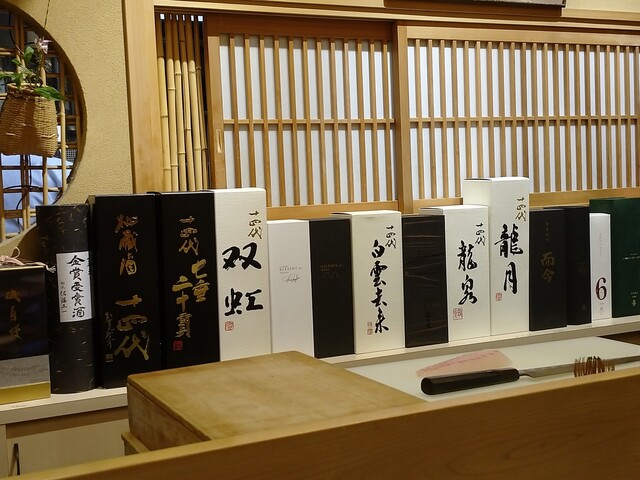 金賞受賞酒
秘蔵酒
十四代
十四代
七垂
二十貫
十四代
双虹
十四代
白雲去来
十四代
龍泉
十四代
龍月
而今
6